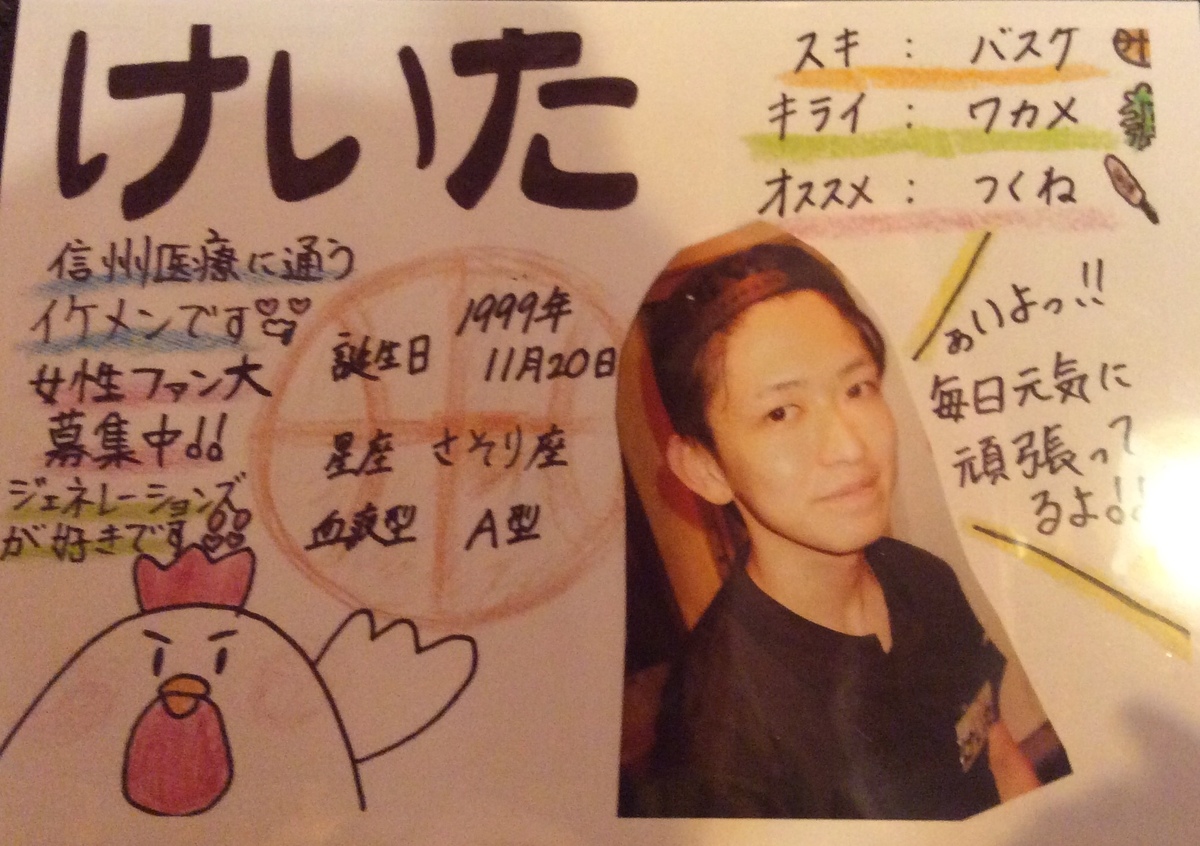 けいた
スキ : バスケ
キライ : ワカメ
オススメ : つくね
信州医療に通う
イケメンです
女性ファン大
募集中!!
ジェネレーションズ
が好きです
誕生日 1999年
11月20日
星座 さそり座
血液型 A型
あいよっ!!
毎日元気に
頑張って
るよ!!